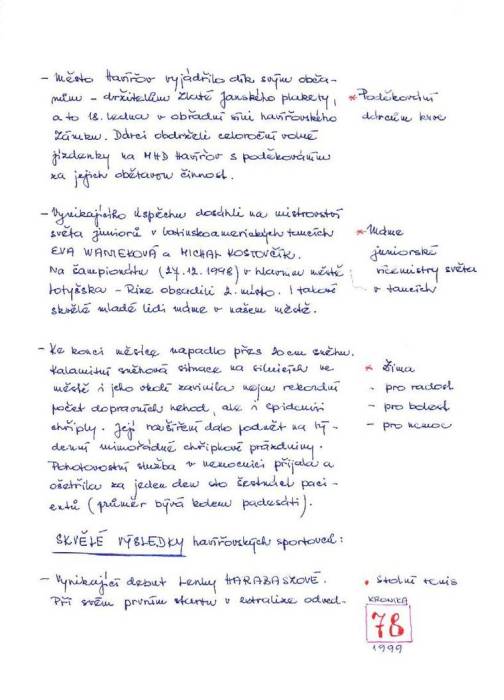 - Město Havířov vyjádřilo dík svým obča-
nům - držitelům Zlaté Janského plakety,
a to 18. ledna v obřadní síni havířovského
Zámku. Dárci obdrželi celoroční volné
jízdenky na MHD Havířov s poděkováním
za jejich obětavou činnost.
* Poděkování
dárcům krve
- Vynikajícího úspěchu dosáhli na mistrovství
světa juniorů v latinskoamerických tancích
EVA WANIEKOVÁ a MICHAL KOSTOVČÍK.
Na šampionátu (27.12.1998) v hlavním městě
Lotyšska - Rize obsadili 2. místo. I takové
skvělé mladé lidi máme v našem městě.
* Máme
juniorské
vicemistry světa
v tancích
- Ke konci měsíce napadlo přes 20 cm sněhu.
Kalamitní sněhová situace na silnicích ve
městě i jeho okolí zavinila nejen rekordní
počet dopravních nehod, ale i epidemii
chřipky. Její rozšíření dalo podnět na tý-
denní mimořádné chřipkové prázdniny.
Pohotovostní služba v nemocnici přijala a
ošetřila za jeden den sto šestnáct paci-
entů (průměr bývá kolem padesáti).
* Zima
- pro radost
- pro bolest
- pro nemoc
SKVĚLÉ VÝSLEDKY havířovských sportovců:
- Vynikající debut Lenky HARABASZOVÉ.
Při svém prvním startu v extralize odved-
* Stolní tenis
KRONIKA
78
1999